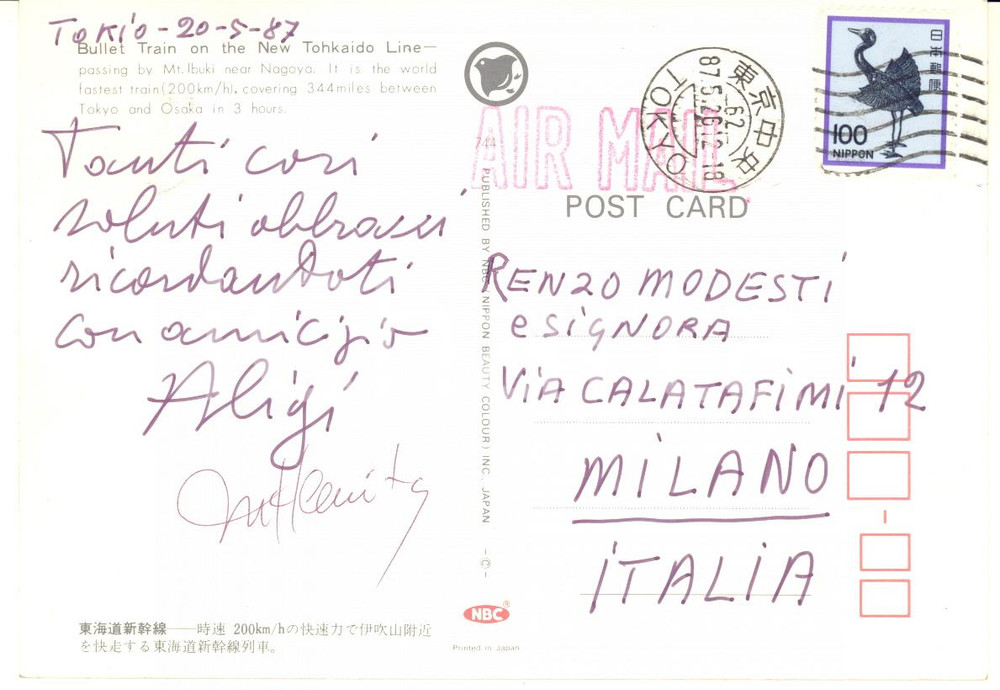 TOKiO-20-5-87
Bullet Train on the New Tohkaido Line—
passing by Mt. Ibuki near Nagoya. It is the world
fastest train (200km/h), covering 344miles between
Tokyo and Osaka in 3 hours.
Tanti cari
saluti abbracci
ricordandoti
con amicizia
Aligi
東海道新幹線——時速 200km/hの快速力で伊吹山附近
を快走する東海道新幹線列車。
744
PUBLISHED BY NBC (NIPPON BEAUTY COLOUR) INC. JAPAN -©-
NBC®
Printed in Japan
AIR MAIL
東京中央
87.5.26.12-18
62
TOKYO
日本郵便
100
NIPPON
POST CARD
RENZO MODESTi
e SiGNORA
ViA CALATAFiMi 12
MiLANO
iTALiA